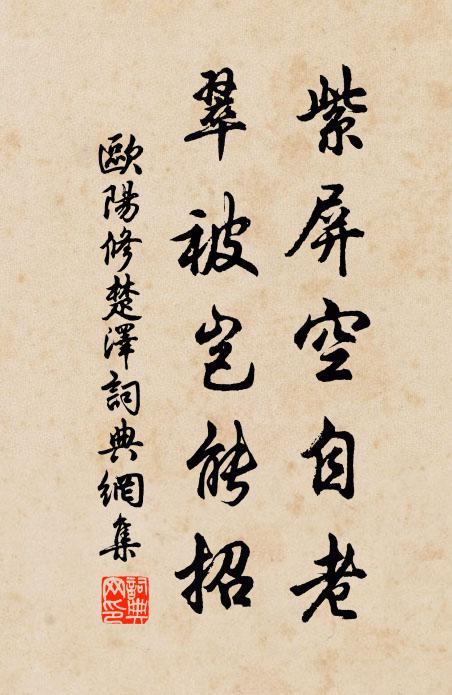 紫屏空自老
翠被岂能招
歐陽修楚澤詞典網集
詞典網印